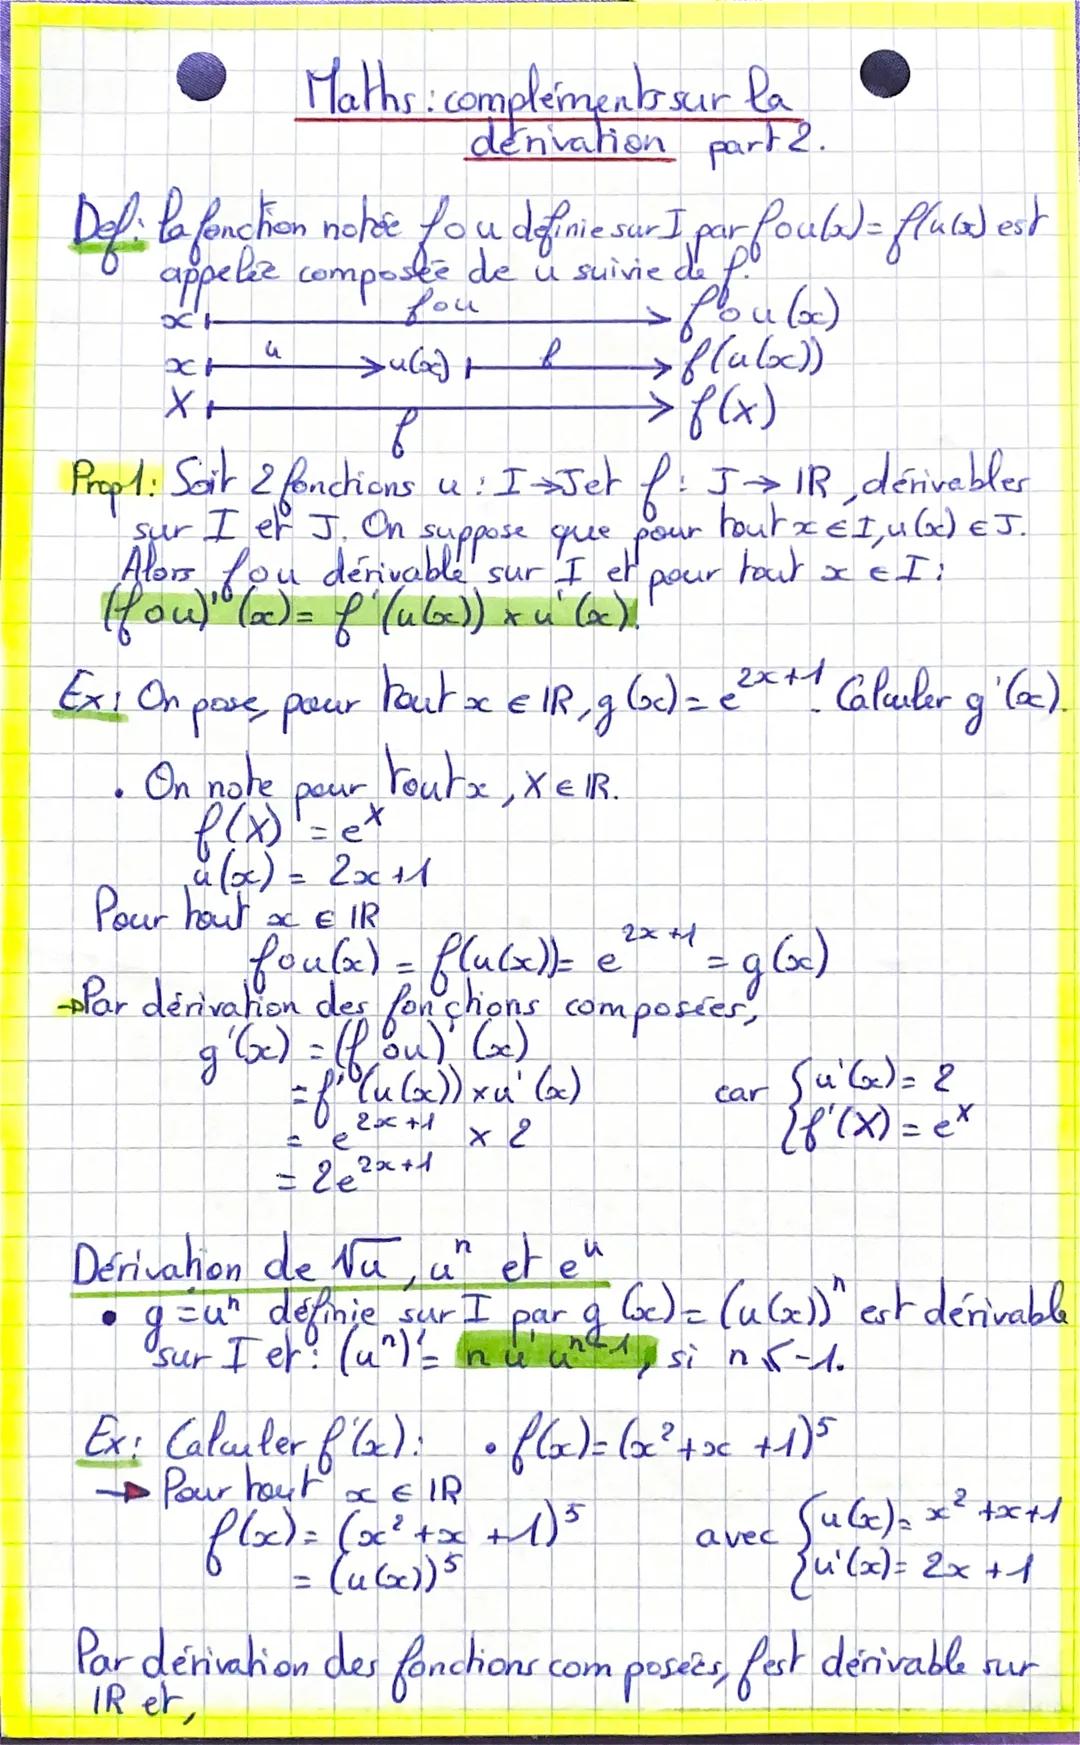 Maths : compléments sur la
dérivation part 2.
Def : la fonction notée fou définie sur I par fou(x) = f(u(x) est
appelée composée de u suivie de f.
fou
x ⟼ fou(x)
x ⟼ u → u(x) ⟼ f → f(u(x))
X ⟼ f(x)
f
Prop 1 : Soit 2 fonctions u : I → J et f : J → IR, dérivables
sur I et J. On suppose que pour tout x ∈ I, u(x) ∈ J.
Alors fou dérivable sur I et pour tout x ∈ I :
(fou)'(x) = f'(u(x)) × u'(x).
Ex : On pose, pour tout x ∈ IR, g(x) = e^{2x+1}. Calculer g'(x).
• On note pour tout x, X ∈ IR.
f(X) = e^X
u(x) = 2x+1
Pour tout x ∈ IR
fou(x) = f(u(x)) = e^{2x+1} = g(x)
→ Par dérivation des fonctions composées,
g'(x) = (fou)'(x)
= f'(u(x)) × u'(x) car { u'(x) = 2
= e^{2x+1} × 2 { f'(X) = e^X
= 2e^{2x+1}
Dérivation de √u, u^n et e^u
• g = u^n définie sur I par g(x) = (u(x))^n est dérivable
sur I et : (u^n)' = n u' u^{n-1}, si n ≤ -1.
Ex : Calculer f'(x) : • f(x) = (x² + x + 1)^5
→ Pour tout x ∈ IR
f(x) = (x² + x + 1)^5 avec { u(x) = x² + x + 1
= (u(x))^5 { u'(x) = 2x + 1
Par dérivation des fonctions composées, f est dérivable sur
IR et,